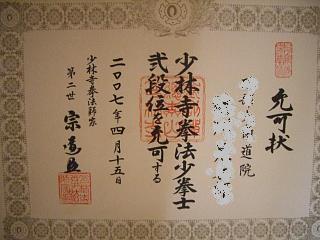 允可状
道院
少林寺拳法少拳士
弐段位を允可する
二〇〇七年四月十五日
少林寺拳法師家
第二世 宗道臣